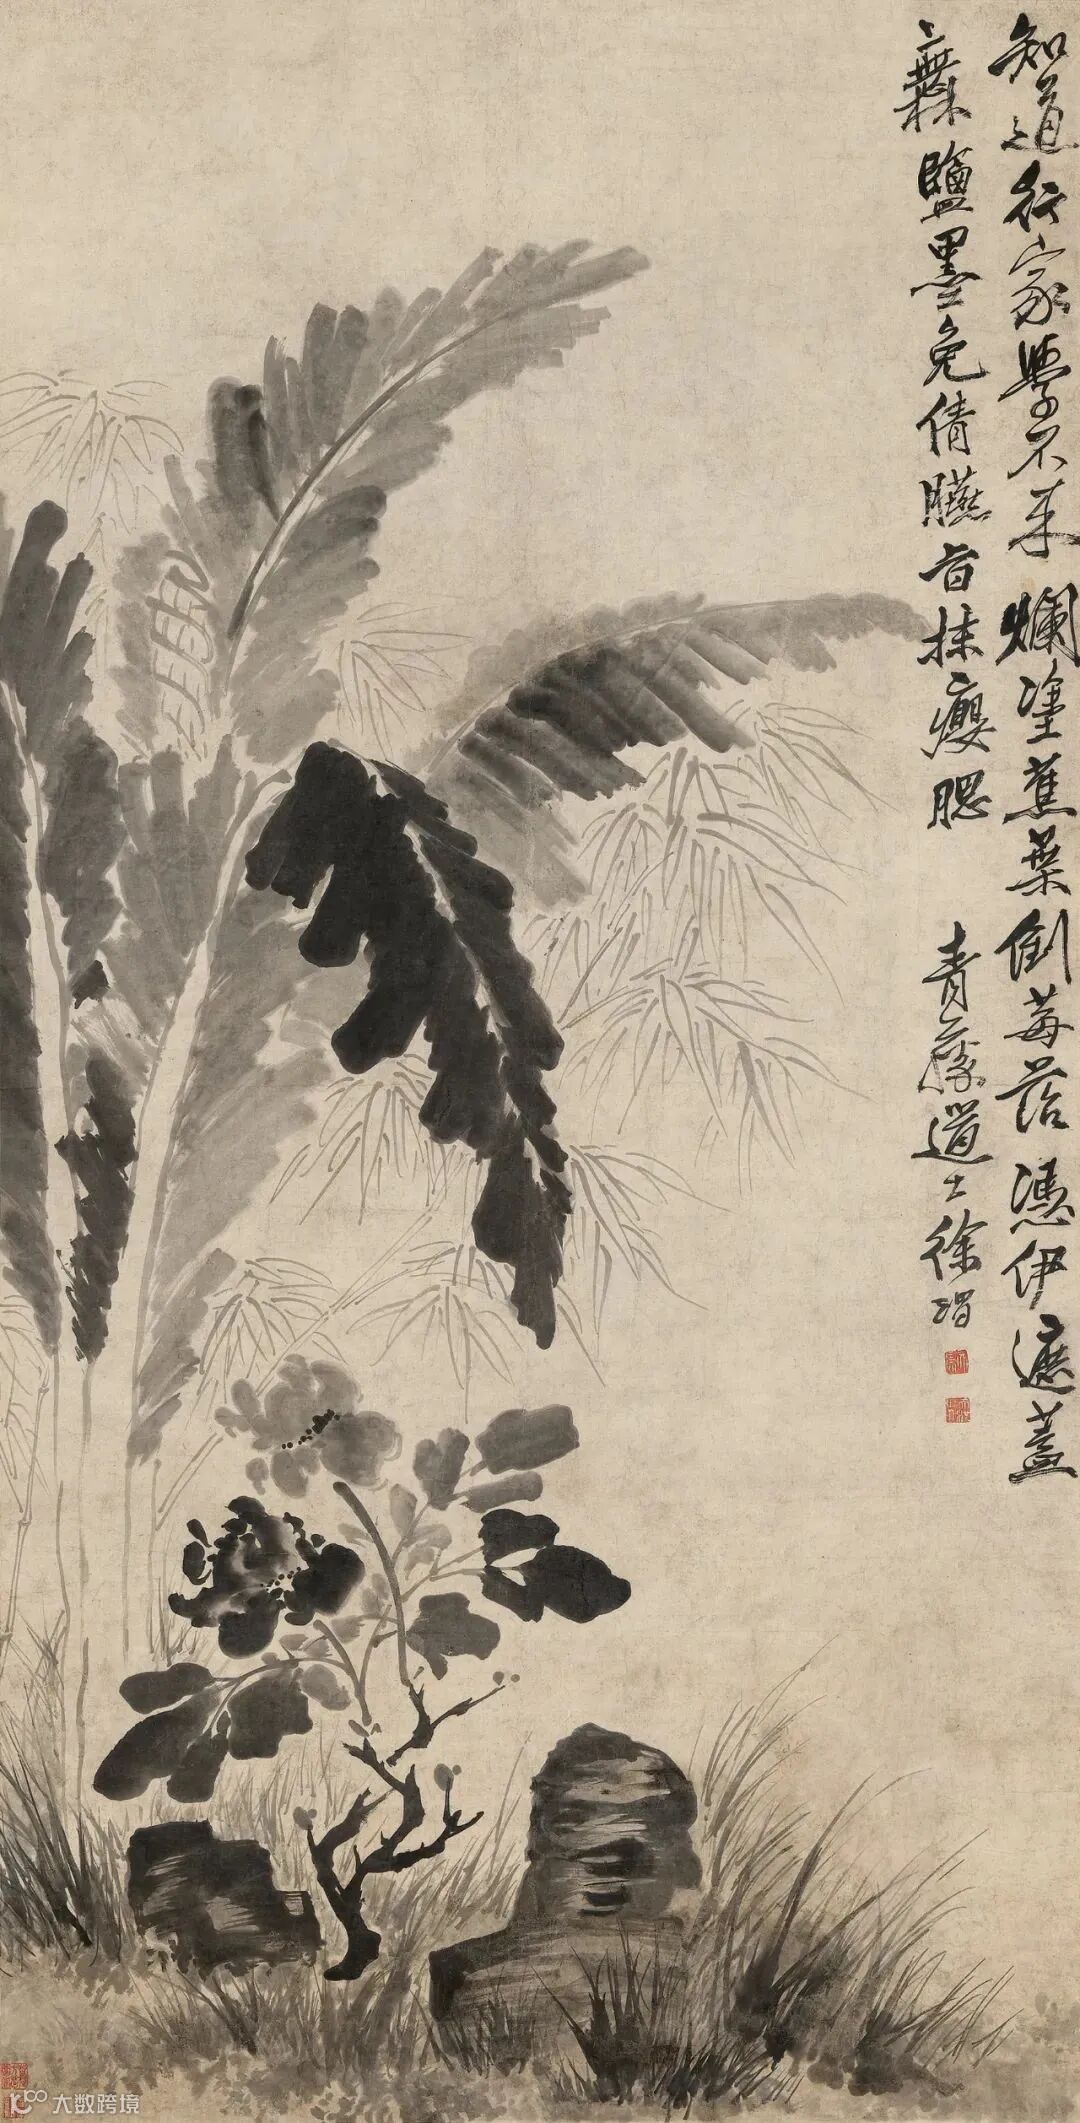 知道行家學不来爛塗蕉葉倒莓苔憑伊遮蓋
橆鹽墨免倩臙旨抹癭腮 青藤道士徐渭
大数跨境